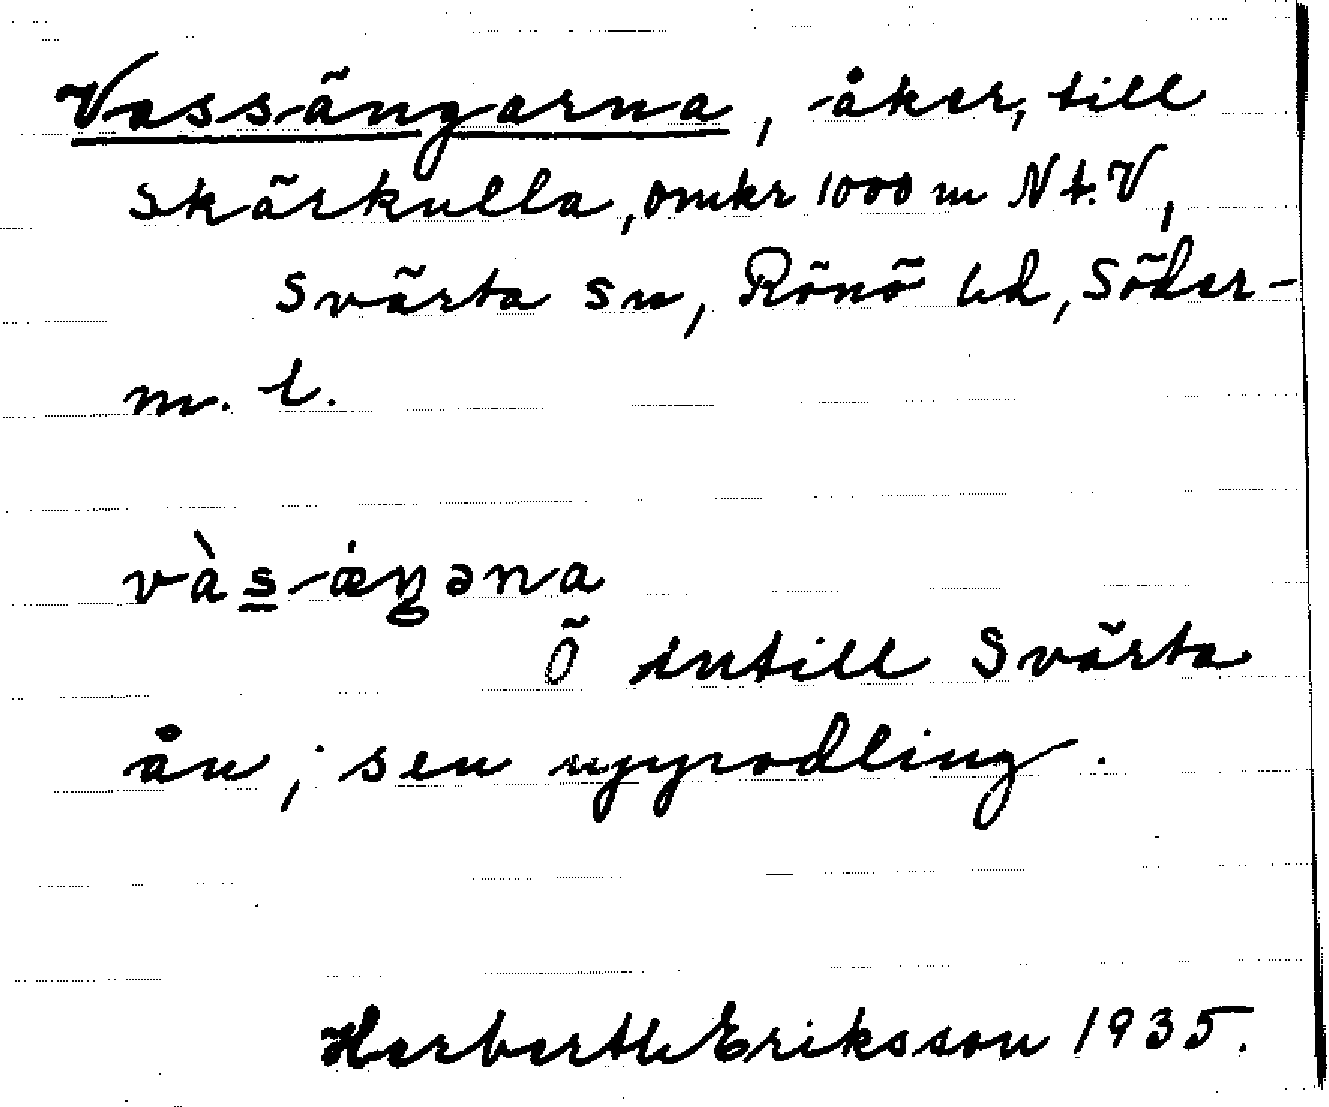 Vassängarna, åker, till
Skärkulla, omkr 1000 m N t. V,
Svärta sn, Rönö hd, Söder-
m. l.
vàs-æ̇ŋəna
Ö intill Svärta
ån; sen uppodling.
Herbert Eriksson 1935.